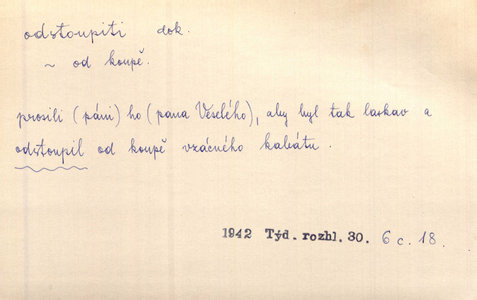 odstoupiti dok.
~ od koupě.
prosili (páni) ho (pana Veselého), aby byl tak laskav a
odstoupil od koupě vzácného kabátu.
1942 Týd. rozhl. 30. 6 c. 18.